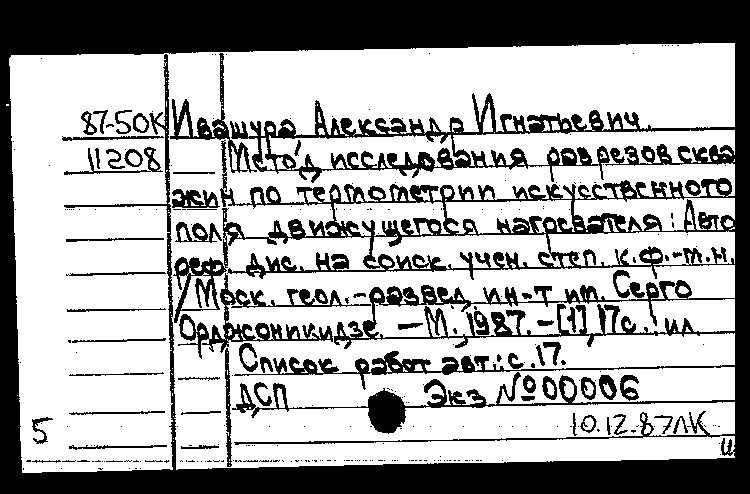 87-50К Ивашура Александр Игнатьевич.
11208 Метод исследования разрезов сква
жин по термометрии искусственного
поля движущегося нагревателя: Авто
реф. дис. на соиск. учен. степ. к.ф.-м.н.
/Моск. геол.-развед. ин-т им. Серго
Орджоникидзе. — М., 1987. - [1], 17с.: ил.
Список работ авт.: с. 17.
ДСП Экз №00006
5 10.12.87ЛК